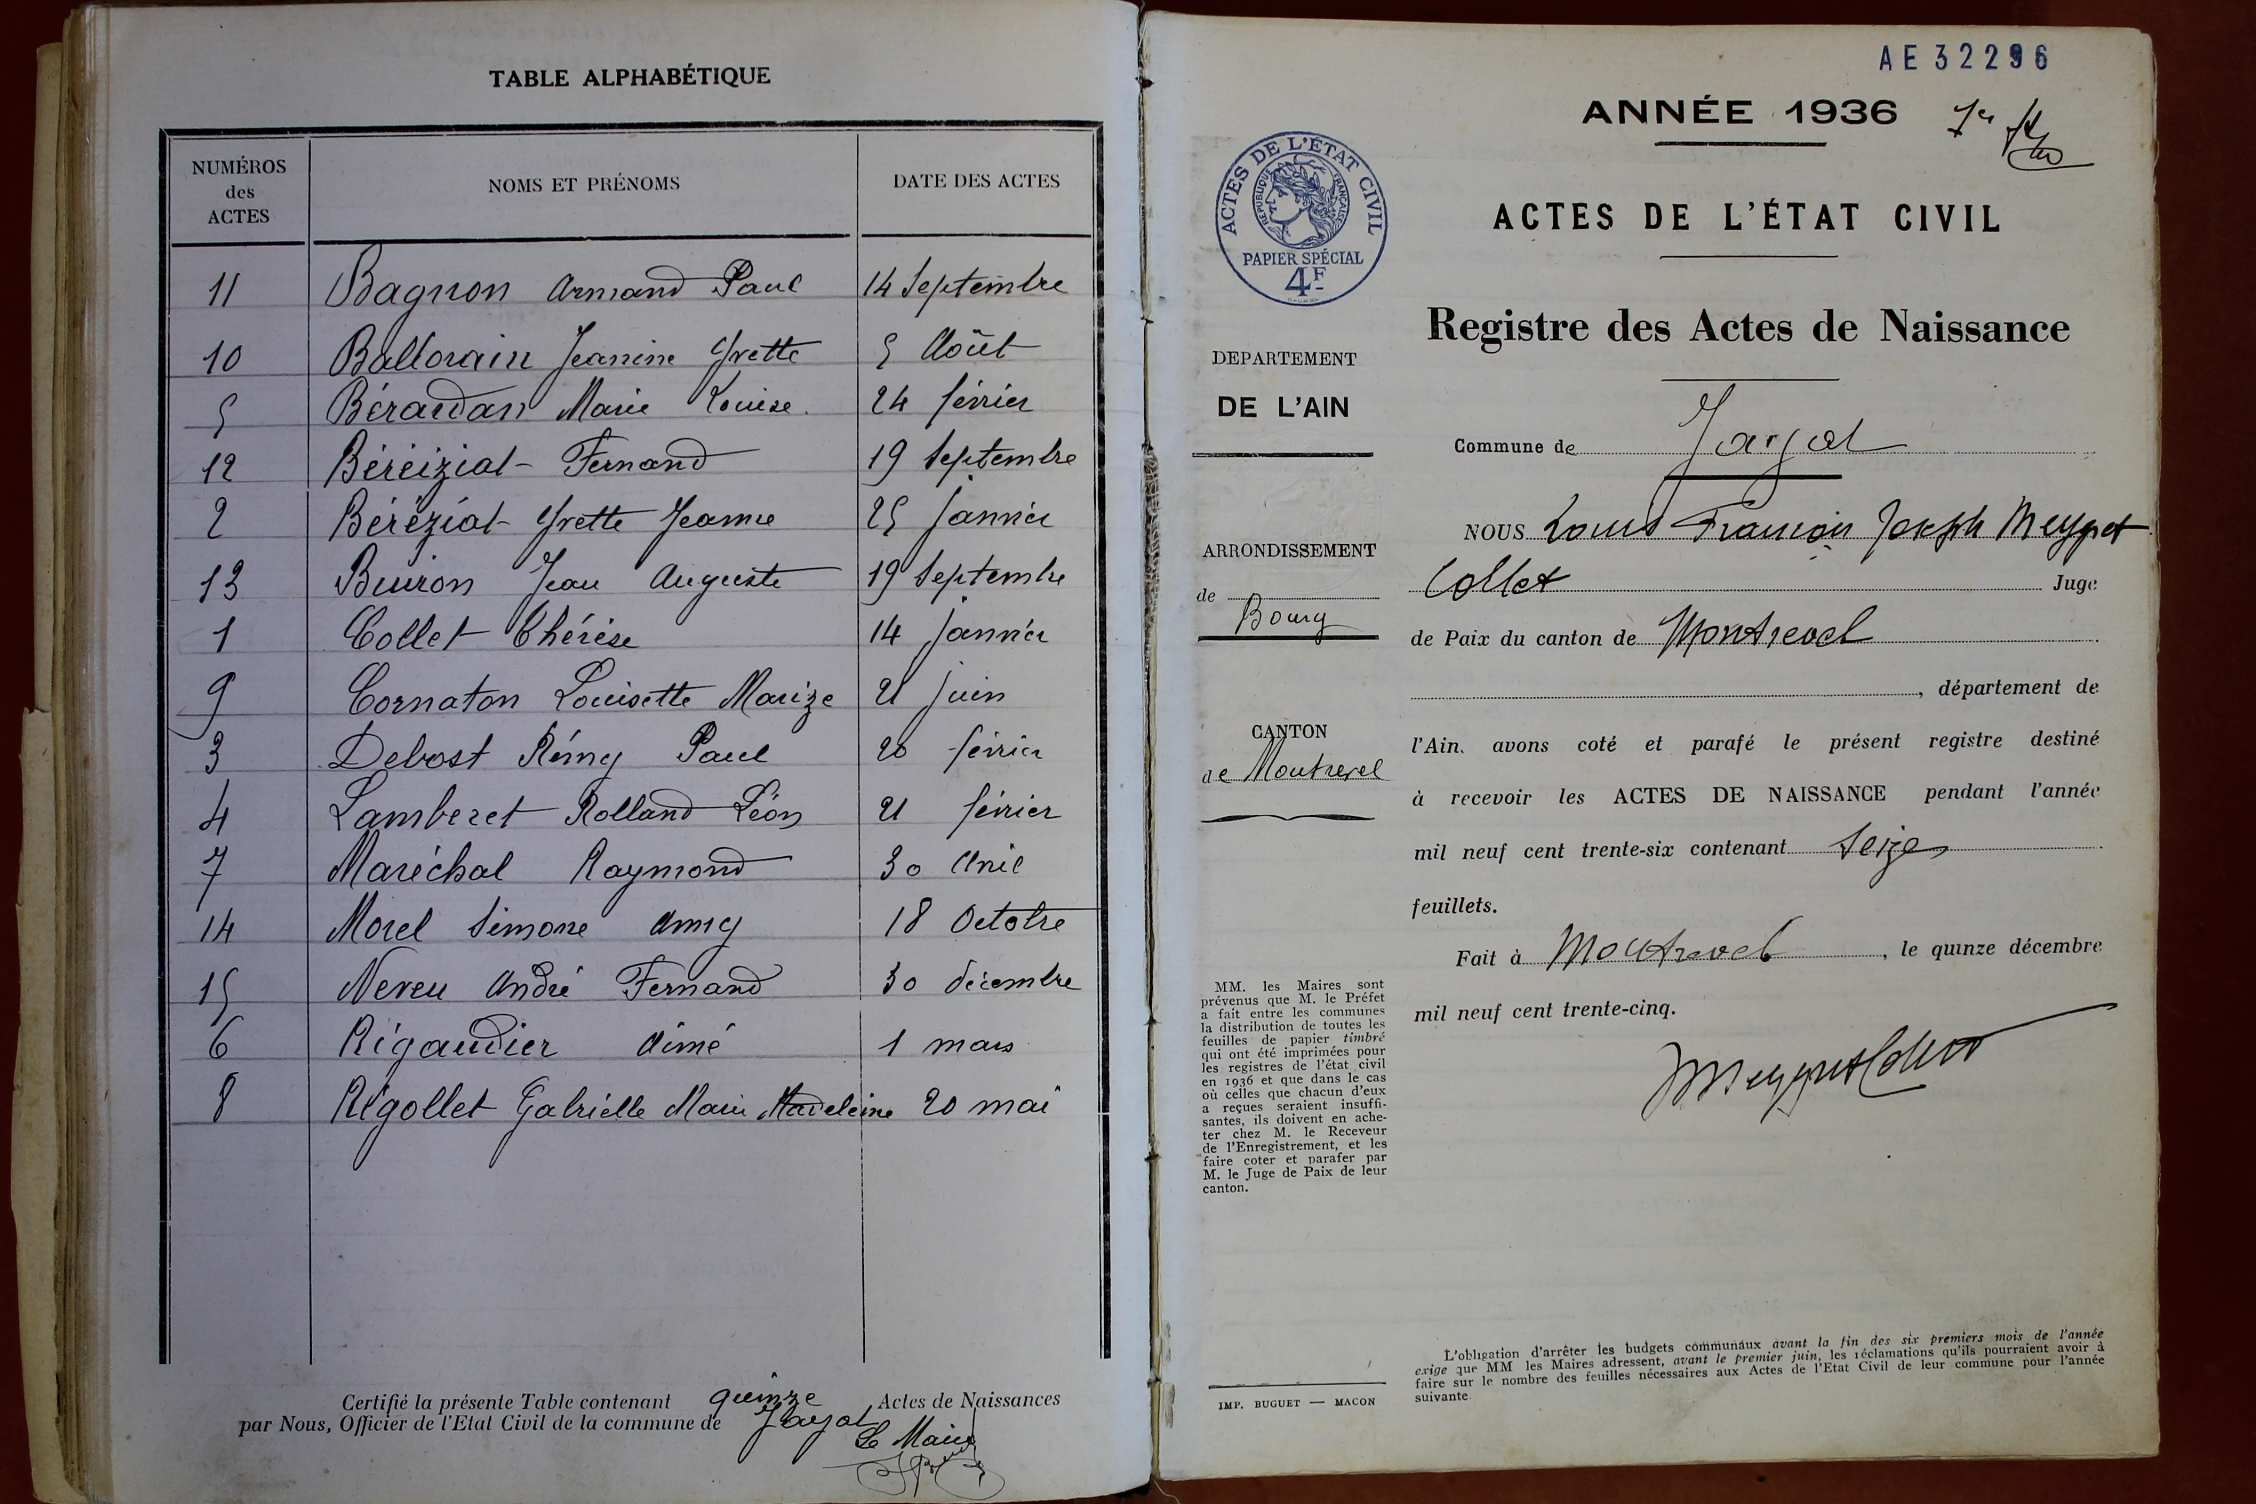 TABLE ALPHABÉTIQUE
NUMÉROS des ACTES NOMS ET PRÉNOMS DATE DES ACTES
11 Bagnon Armand Paul 14 Septembre
10 Ballorain Jeanine Yvette 5 Août
5 Bérardan Marie Louise. 24 février
12 Béréizial Fernand 19 Septembre
2 Bérézial Yvette Jeanne 25 janvier
13 Buiron Jean Auguste 19 Septembre
1 Collet Thérèse 14 janvier
9 Cornaton Louisette Marize 21 juin
3 Debost Rémy Paul 20 février
4 Lamberet Rolland Léon 21 février
7 Maréchal Raymond 30 Avril
14 Morel Simone Anny 18 Octobre
15 Neveu André Fernand 30 décembre
6 Rigaudier Aimé 1 mars
8 Rigollet Gabrielle Marie Madeleine 20 mai
Certifié la présente Table contenant quinze Actes de Naissances
par Nous, Officier de l'Etat Civil de la commune de Jayat
Le Maire
AE 32296
ANNÉE 1936
ACTES DE L'ÉTAT CIVIL
RÉPUBLIQUE FRANÇAISE
PAPIER SPÉCIAL
4F
ACTES DE L'ÉTAT CIVIL
Registre des Actes de Naissance
DEPARTEMENT
DE L'AIN
Commune de Jayat
ARRONDISSEMENT
de Bourg
CANTON
de Montrevel
NOUS Louis François Joseph Meygret
Collet Juge
de Paix du canton de Montrevel
, département de
l'Ain, avons coté et parafé le présent registre destiné
à recevoir les ACTES DE NAISSANCE pendant l'année
mil neuf cent trente-six contenant seize
feuillets.
Fait à Montrevel, le quinze décembre
mil neuf cent trente-cinq.
Meygret Collet
MM. les Maires sont
prévenus que M. le Préfet
a fait entre les communes
la distribution de toutes les
feuilles de papier timbré
qui ont été imprimées pour
les registres de l'état civil
en 1936 et que dans le cas
où celles que chacun d'eux
a reçues seraient insuffi-
santes, ils doivent en ache-
ter chez M. le Receveur
de l'Enregistrement, et les
faire coter et parafer par
M. le Juge de Paix de leur
canton.
IMP. BUGUET — MACON
L'obligation d'arrêter les budgets communaux avant la fin des six premiers mois de l'année
exige que MM les Maires adressent, avant le premier juin, les réclamations qu'ils pourraient avoir à
faire sur le nombre des feuilles nécessaires aux Actes de l'Etat Civil de leur commune pour l'année
suivante